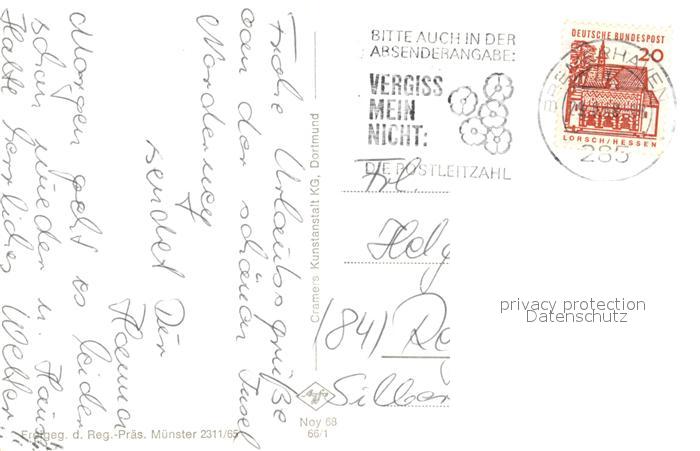 Frohe Urlaubsgrüße
von der schönen Insel
Norderney
sendet Dir
Morgen geht es leider
schon wieder n. Hause
Hatte herrliches Wetter!!
BITTE AUCH IN DER
ABSENDERANGABE:
VERGISS
MEIN
NICHT:
DIE POSTLEITZAHL
BREMERHAVEN
285
DEUTSCHE BUNDESPOST
20
LORSCH/HESSEN
Frl.
Helg
(84) Re
Silber
privacy protection
Datenschutz
Cramers Kunstanstalt KG, Dortmund
Agfa
Noy 68
66/1
Freigeg. d. Reg.-Präs. Münster 2311/65